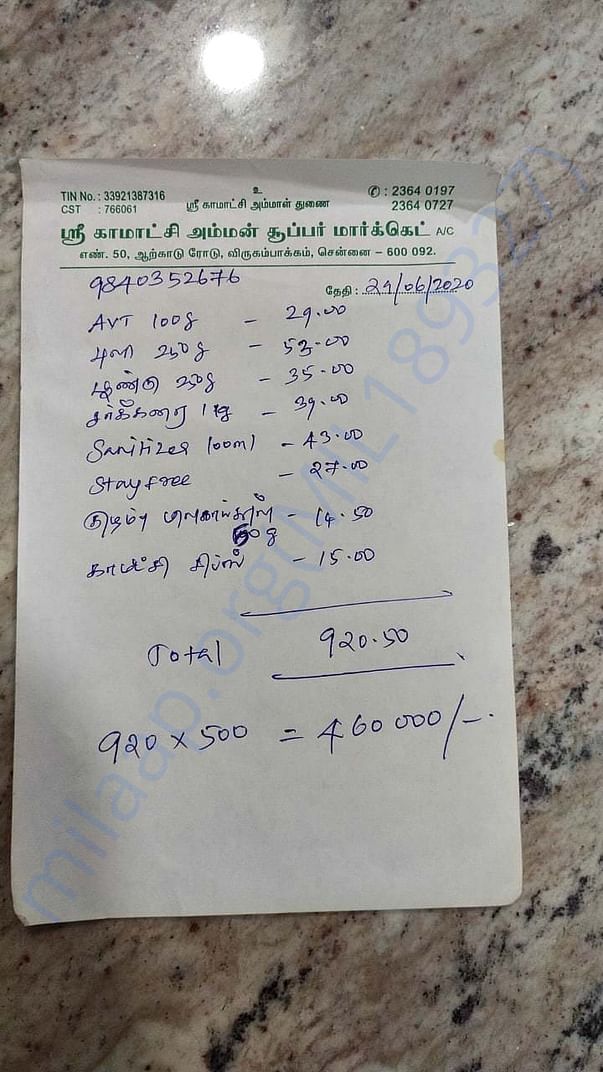 TIN No. : 33921387316
CST : 766061
உ
ஸ்ரீ காமாட்சி அம்மாள் துணை
✆ : 2364 0197
2364 0727
ஸ்ரீ காமாட்சி அம்மன் சூப்பர் மார்க்கெட் A/C
எண். 50, ஆற்காடு ரோடு, விருகம்பாக்கம், சென்னை – 600 092.
9840352676
தேதி : 29/06/2020
AVT 100g - 29.00
புளி 250g - 53.00
பூண்டு 250g - 35.00
சர்க்கரை 1kg - 39.00
Sanitizer 100ml - 43.00
Stayfree - 27.00
குழம்பு மிளகாய்தூள் - 14.50
50g
காமாட்சி சிப்ஸ் - 15.00
Total 920.50
920 x 500 = 460000/-.
milaap.org(MIL189327)